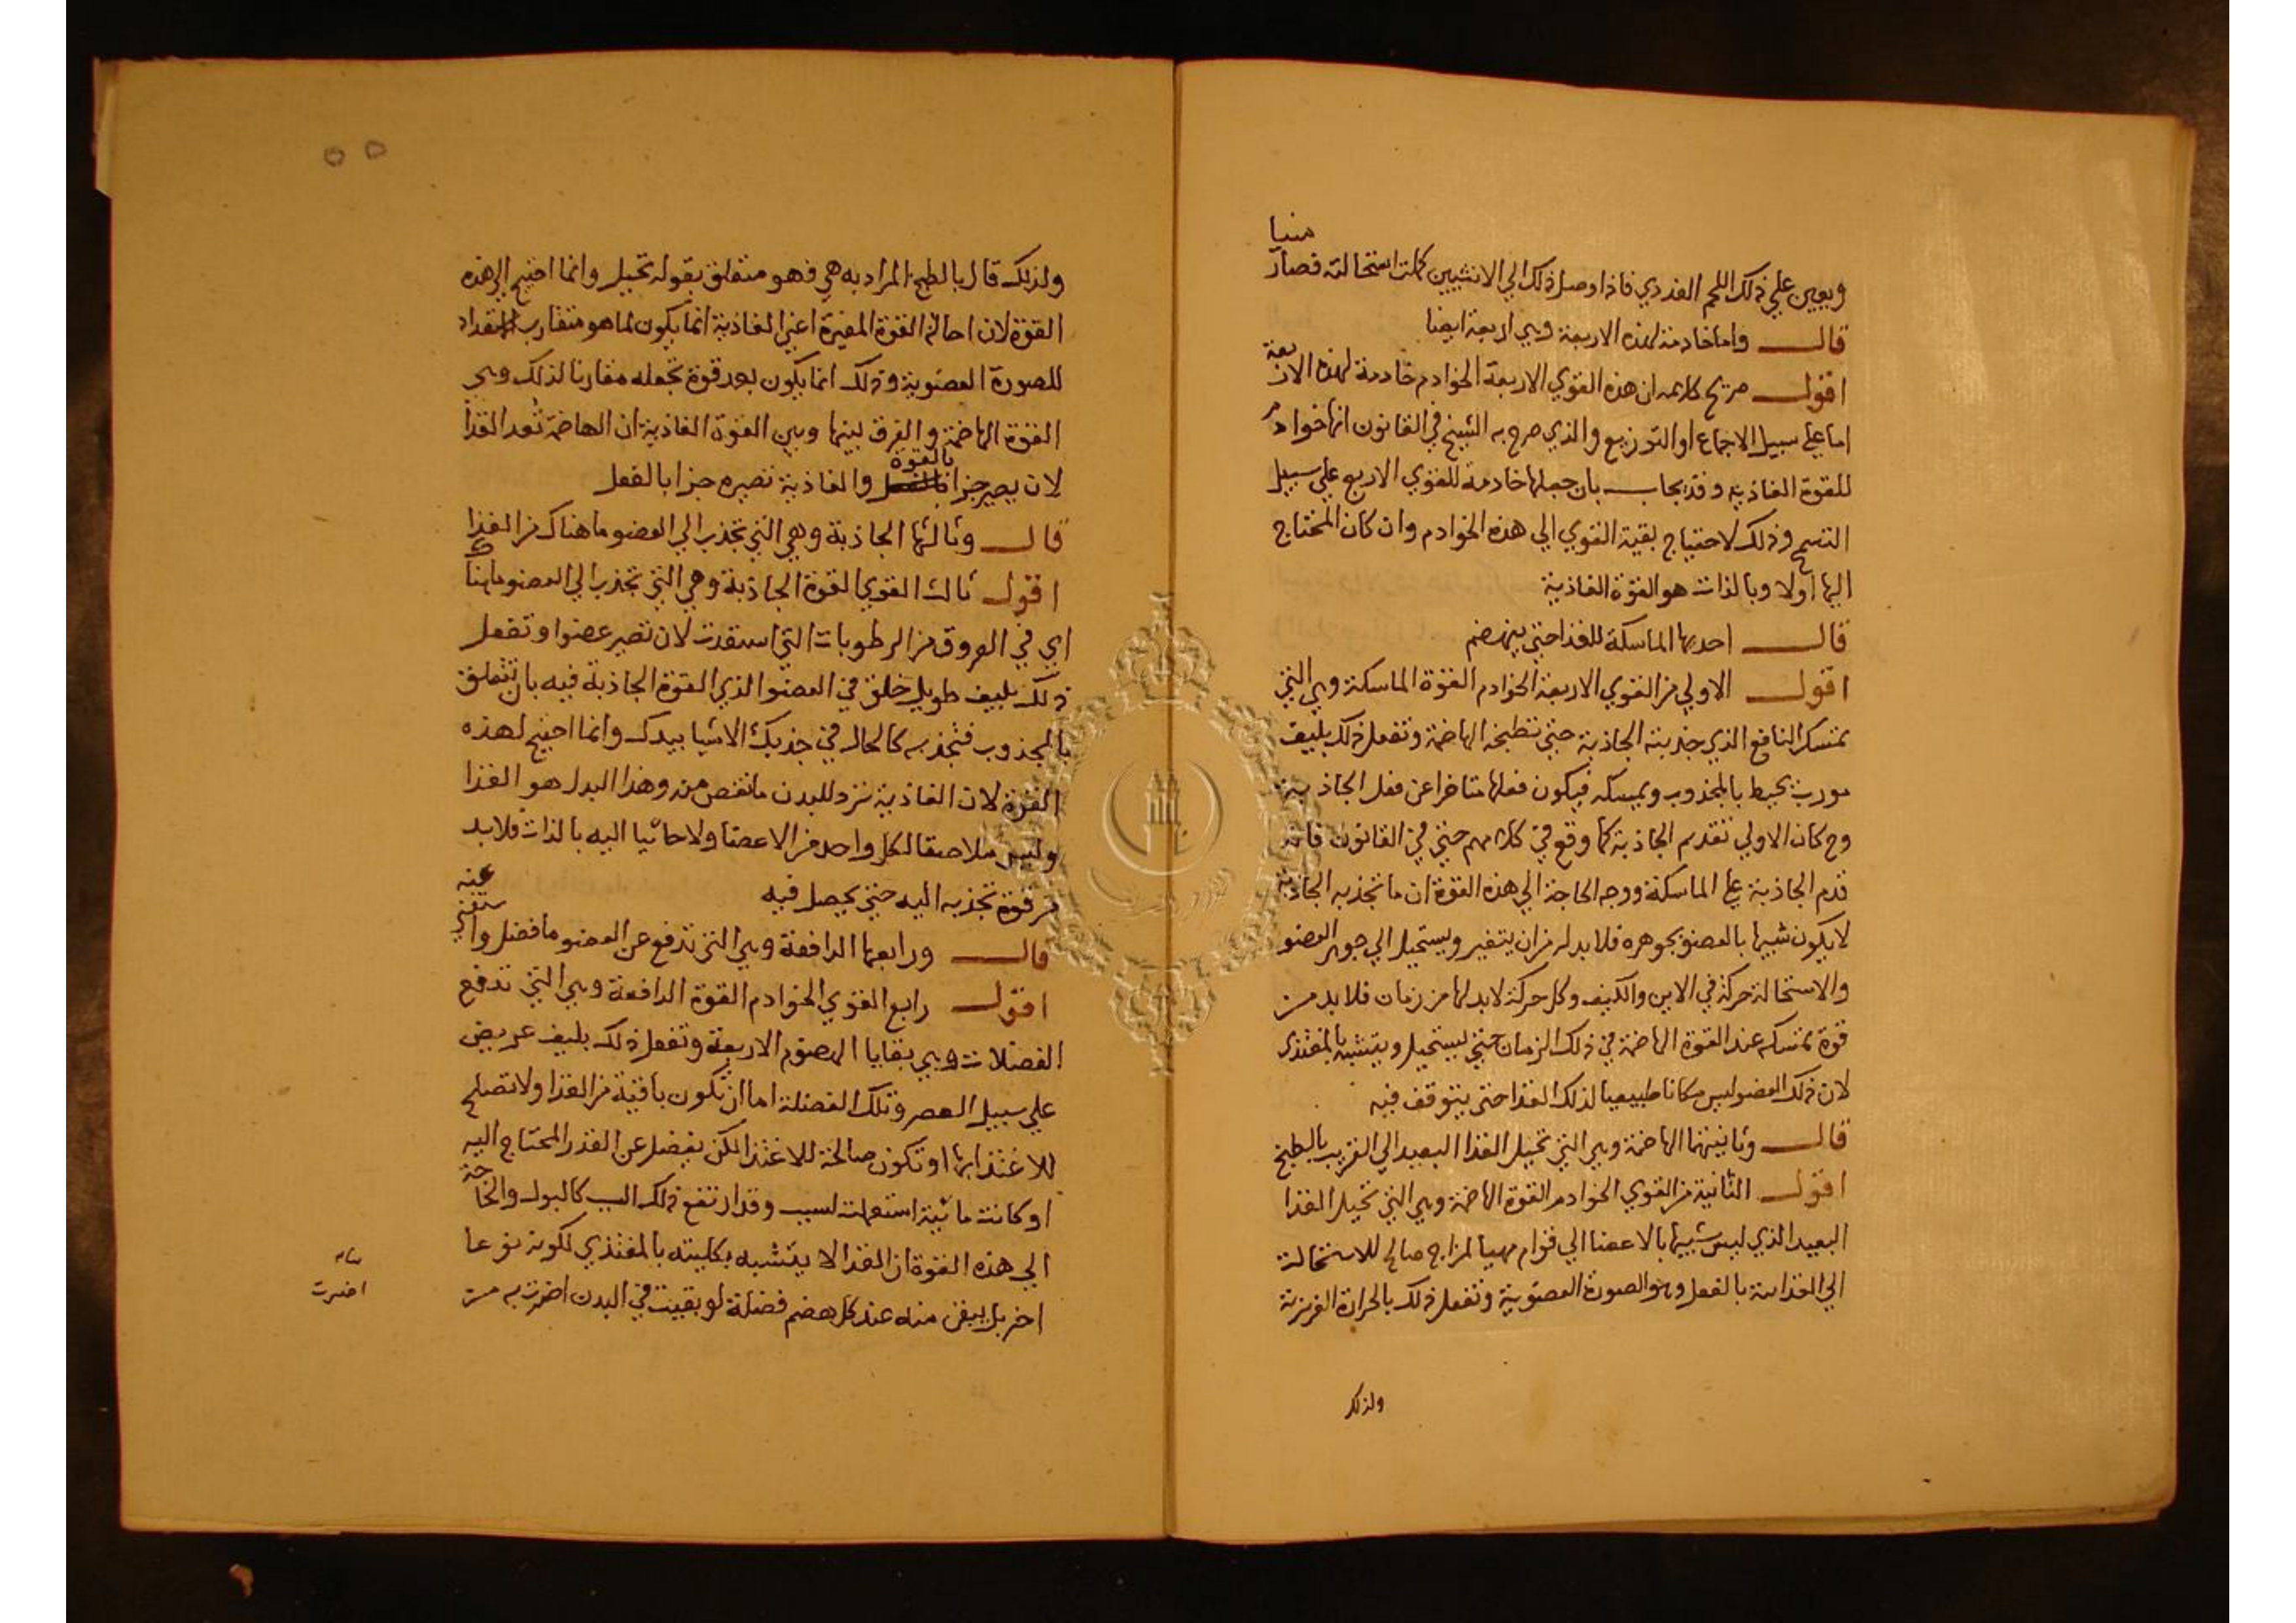 ويعين علي ذلك اللحم الغددي فاذا وصل ذلك الي الانثيين كملت استحالته فصار منيا
قال واما خادمة لهذه الاربعة وهي اربعة ايضا
اقول صريح كلامه ان هذه القوي الاربعة الخوادم خادمة لهذه الاربعة
اما علي سبيل الاجماع او التوزيع والذي صرح به الشيخ في القانون انها خوادم
للقوة الغاذية وقد يجاب بان جعلها خادمة للقوي الاربع علي سبيل
التسمح وذلك لاحتياج بقية القوي الي هذه الخوادم وان كان المحتاج
اليها اولا وبالذات هو القوة الغاذية
قال احدها الماسكة للغذا حتي ينهضم
اقول الاولي من القوي الاربعة الخوادم القوة الماسكة وهي التي
تمسك النافع الذي جذبته الجاذبة حتي تطبخه الهاضمة وتفعل ذلك بليف
مورب يحيط بالمجذوب ويمسكه فيكون فعلها متاخرا عن فعل الجاذبة
وح كان الاولي تقديم الجاذبة كما وقع في كلامهم حتي في القانون فانه
قدم الجاذبة علي الماسكة ووجه الحاجة الي هذه القوة ان ما تجذبه الجاذبة
لا يكون شبيها بالعضو بجوهره فلا بد له من ان يتغير ويستحيل الي جوهر العضو
والاستحالة حركة في الاين والكيف وكل حركة لا بد لها من زمان فلا بد من
قوة تمسكه عند القوة الهاضمة في ذلك الزمان حتي يستحيل ويتشبه بالمغتذي
لان ذلك العضو ليس مكانا طبيعيا لذلك الغذا حتي يتوقف فيه
قال وثانيتها الهاضمة وهي التي تحيل الغذا البعيد الي القريب بالطبخ
اقول الثانية من القوي الخوادم القوة الهاضمة وهي التي تحيل الغذا
البعيد الذي ليس شبيها بالاعضا الي قوام مهيا لمزاج صالح للاستحالة
الي الغذائية بالفعل وهو الصورة العضوية وتفعل ذلك بالحرارة الغريزية
ولذلك
ولذلك قال بالطبخ المراد به هي فهو متعلق بقوله تحيل وانما احتيج الي هذه
القوة لان احالة القوة المغيرة اعني الغاذية انما يكون لما هو متقارب الاستعداد
للصورة العضوية وذلك انما يكون بعد قوة تجعله مقاربا لذلك وهي
القوة الهاضمة والفرق بينها وبين القوة الغاذية ان الهاضمة تعد الغذا
لان يصير جزا بالقوة والغاذية تصيره جزا بالفعل
قال وثالثها الجاذبة وهي التي تجذب الي العضو ما هناك من الغذا
اقول ثالث القوي القوة الجاذبة وهي التي تجذب الي العضو ما هناك
اي في العروق من الرطوبات التي استعدت لان تصير عضوا وتفعل
ذلك بليف طويل خلق في العضو الذي القوة الجاذبة فيه بان تتعلق
بالمجذوب فتجذبه كالحال في جذبك الاشيا بيدك وانما احتيج لهذه
القوة لان الغاذية تزد للبدن ما نقص منه وهذا البدل هو الغذا
وليس ملاصقا لكل واحد من الاعضا ولا جائيا اليه بالذات فلا بد
من قوة تجذبه اليه حتي يحصل فيه
قال ورابعها الدافعة وهي التي تدفع عن العضو ما فضل واستغني عنه
اقول رابع القوي الخوادم القوة الدافعة وهي التي تدفع
الفضلات وهي بقايا الهضوم الاربعة وتفعل ذلك بليف عريض
علي سبيل العصر وتلك الفضلة اما ان تكون باقية من الغذا ولا تصلح
للاغتذا بها او تكون صالحة للاغتذا لكن يفضل عن القدر المحتاج اليه
او كانت مائية استعملت لسبب وقد ارتفع ذلك السبب كالبول والحاجة
الي هذه القوة ان الغذا لا يتشبه بكليته بالمغتذي لكونه نوعا
اخر بل يبقي منه عند كل هضم فضلة لو بقيت في البدن اضرت به من
اضرت